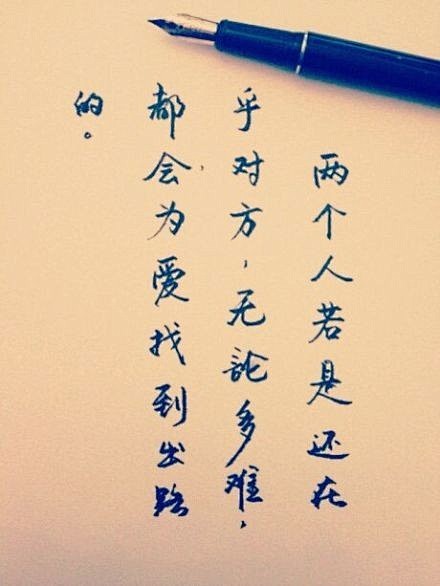 两个人若是还在
乎对方，无论多难，
都会为爱找到出路
的。